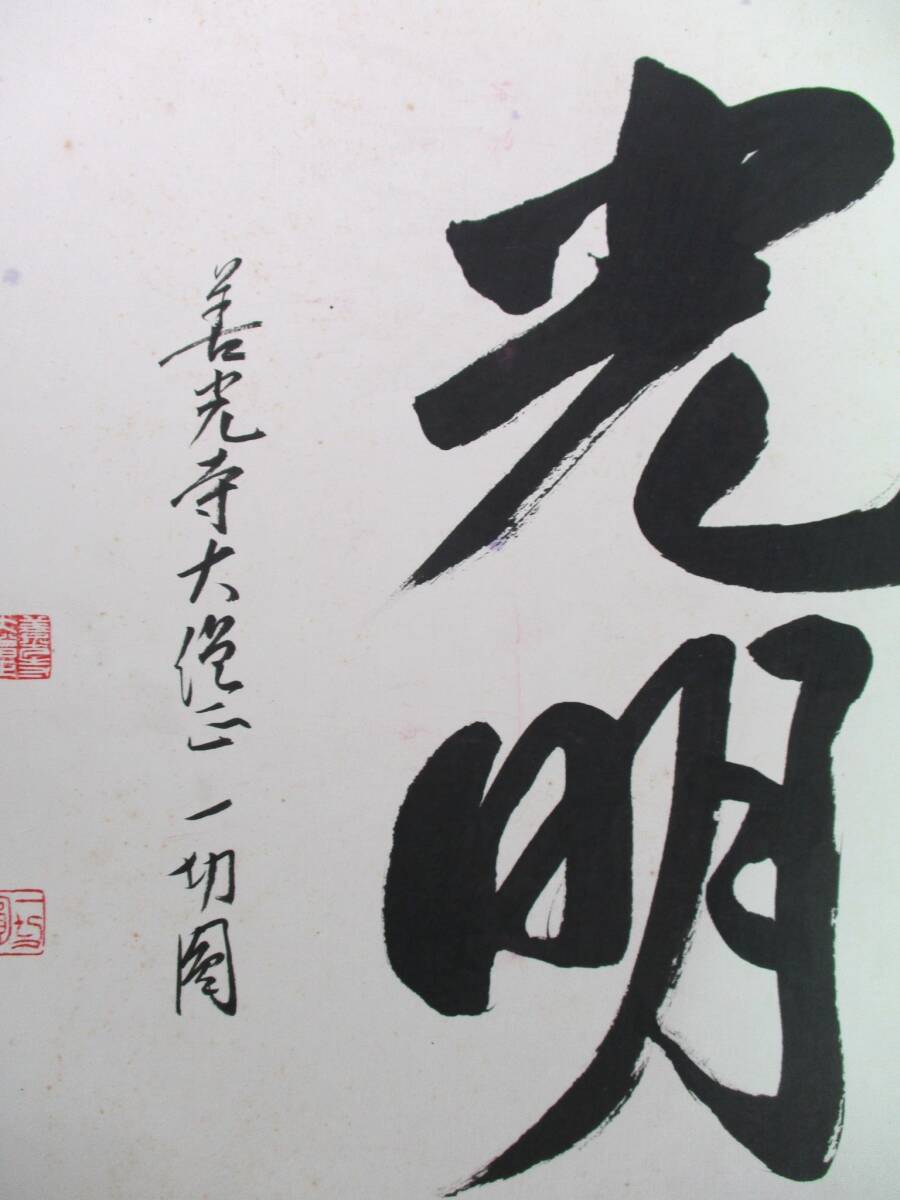 光明
善光寺大僧正 一切圓